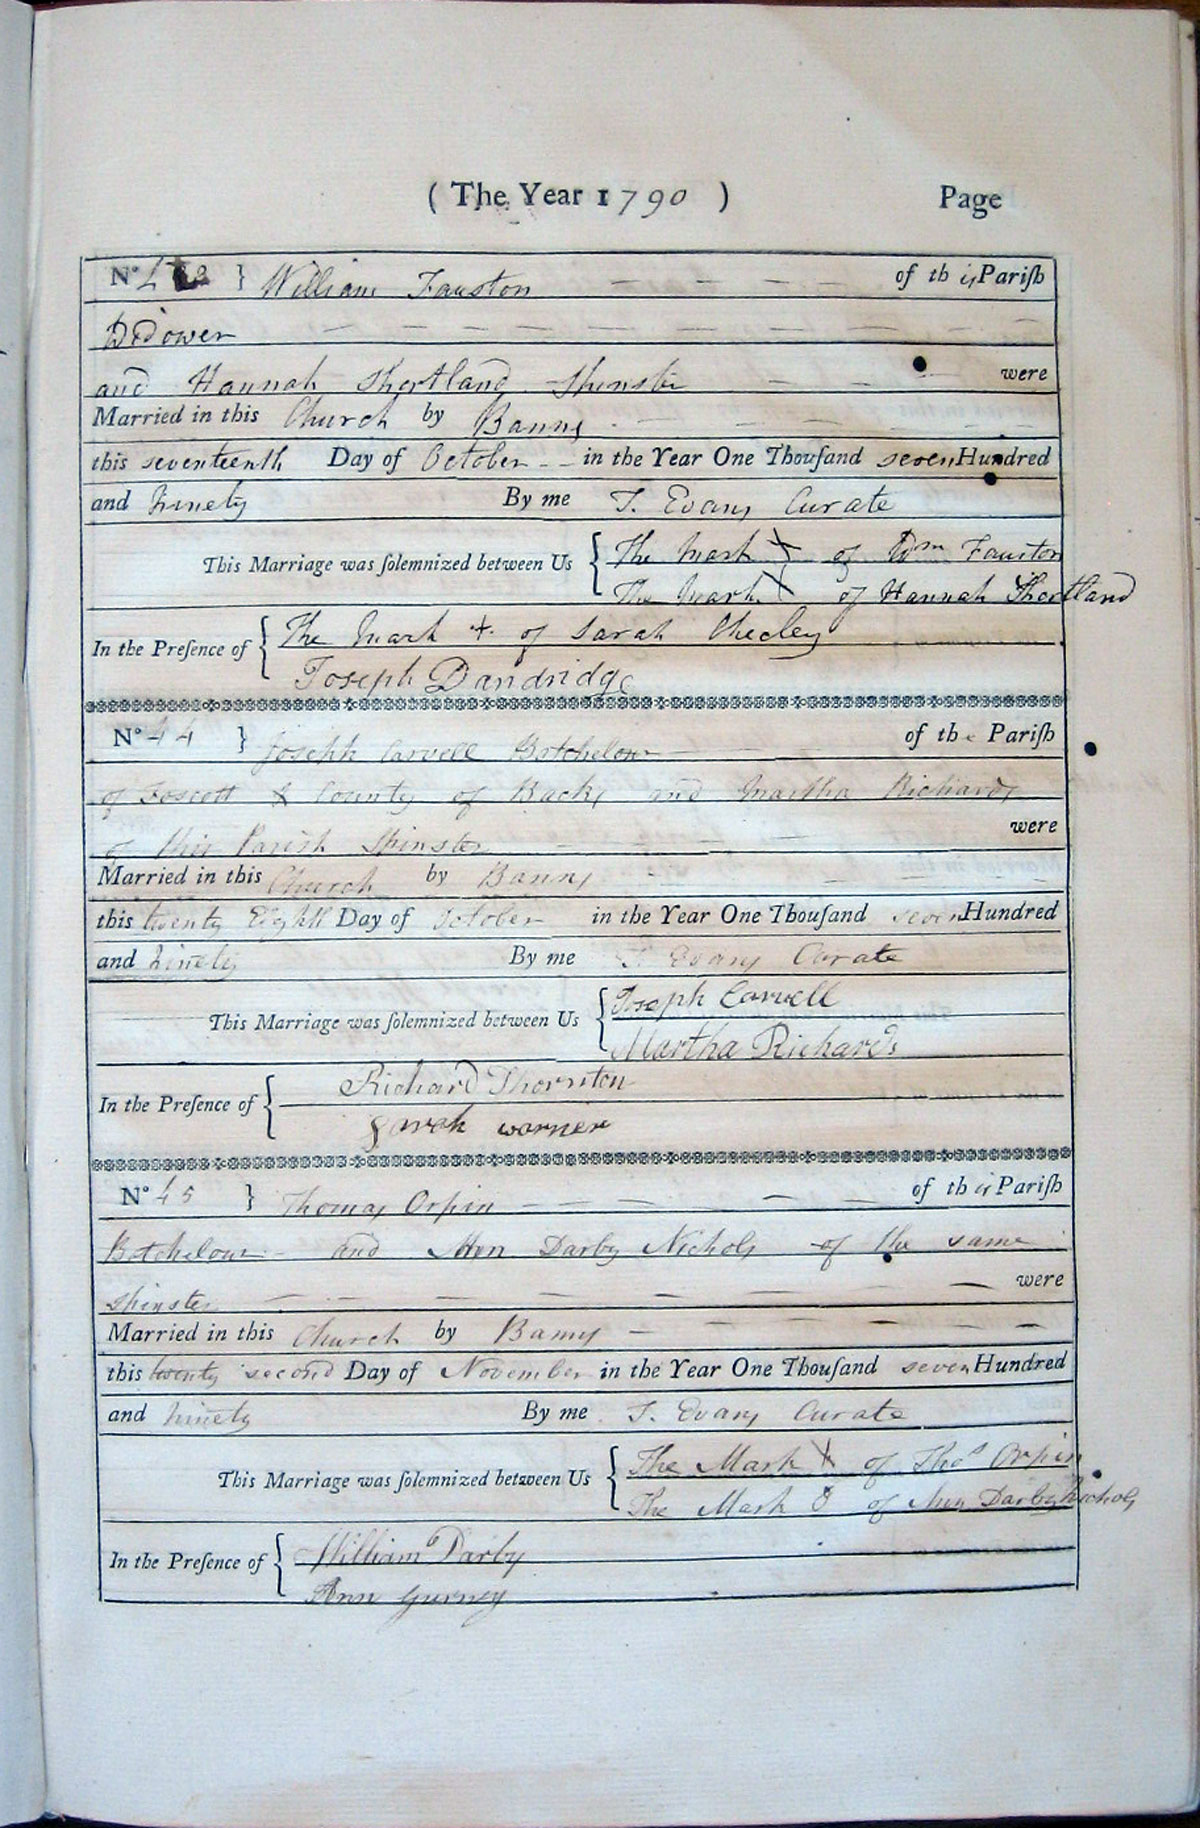 ( The Year 1790 ) Page
No 4 } William Fauston of this Parish
Widower
and Hannah Shortland Spinster were
Married in this Church by Banns
this seventeenth Day of October in the Year One Thousand seven Hundred
and ninety By me T. Evans Curate
This Marriage was solemnized between Us { The Mark X of Wm Fauston
The Mark X of Hannah Shortland
In the Presence of { The Mark + of Sarah Checley
Joseph Dandridge
No 44 } Joseph Carvell Batchelour of the Parish
of Foscott & County of Bucks and Martha Richards
of this Parish Spinster were
Married in this Church by Banns
this twenty Eighth Day of October in the Year One Thousand seven Hundred
and ninety By me T. Evans Curate
This Marriage was solemnized between Us { Joseph Carvell
Martha Richards
In the Presence of { Richard Thornton
Sarah warner
No 45 } Thomas Orpin of this Parish
Batchelour and Darby Nichols of the same
spinster were
Married in this Church by Banns
this twenty second Day of November in the Year One Thousand seven Hundred
and ninety By me T. Evans Curate
This Marriage was solemnized between Us { The Mark X of Thos Orpin
The Mark O of Darby Nichols
In the Presence of { William Darby
Ann Gurney